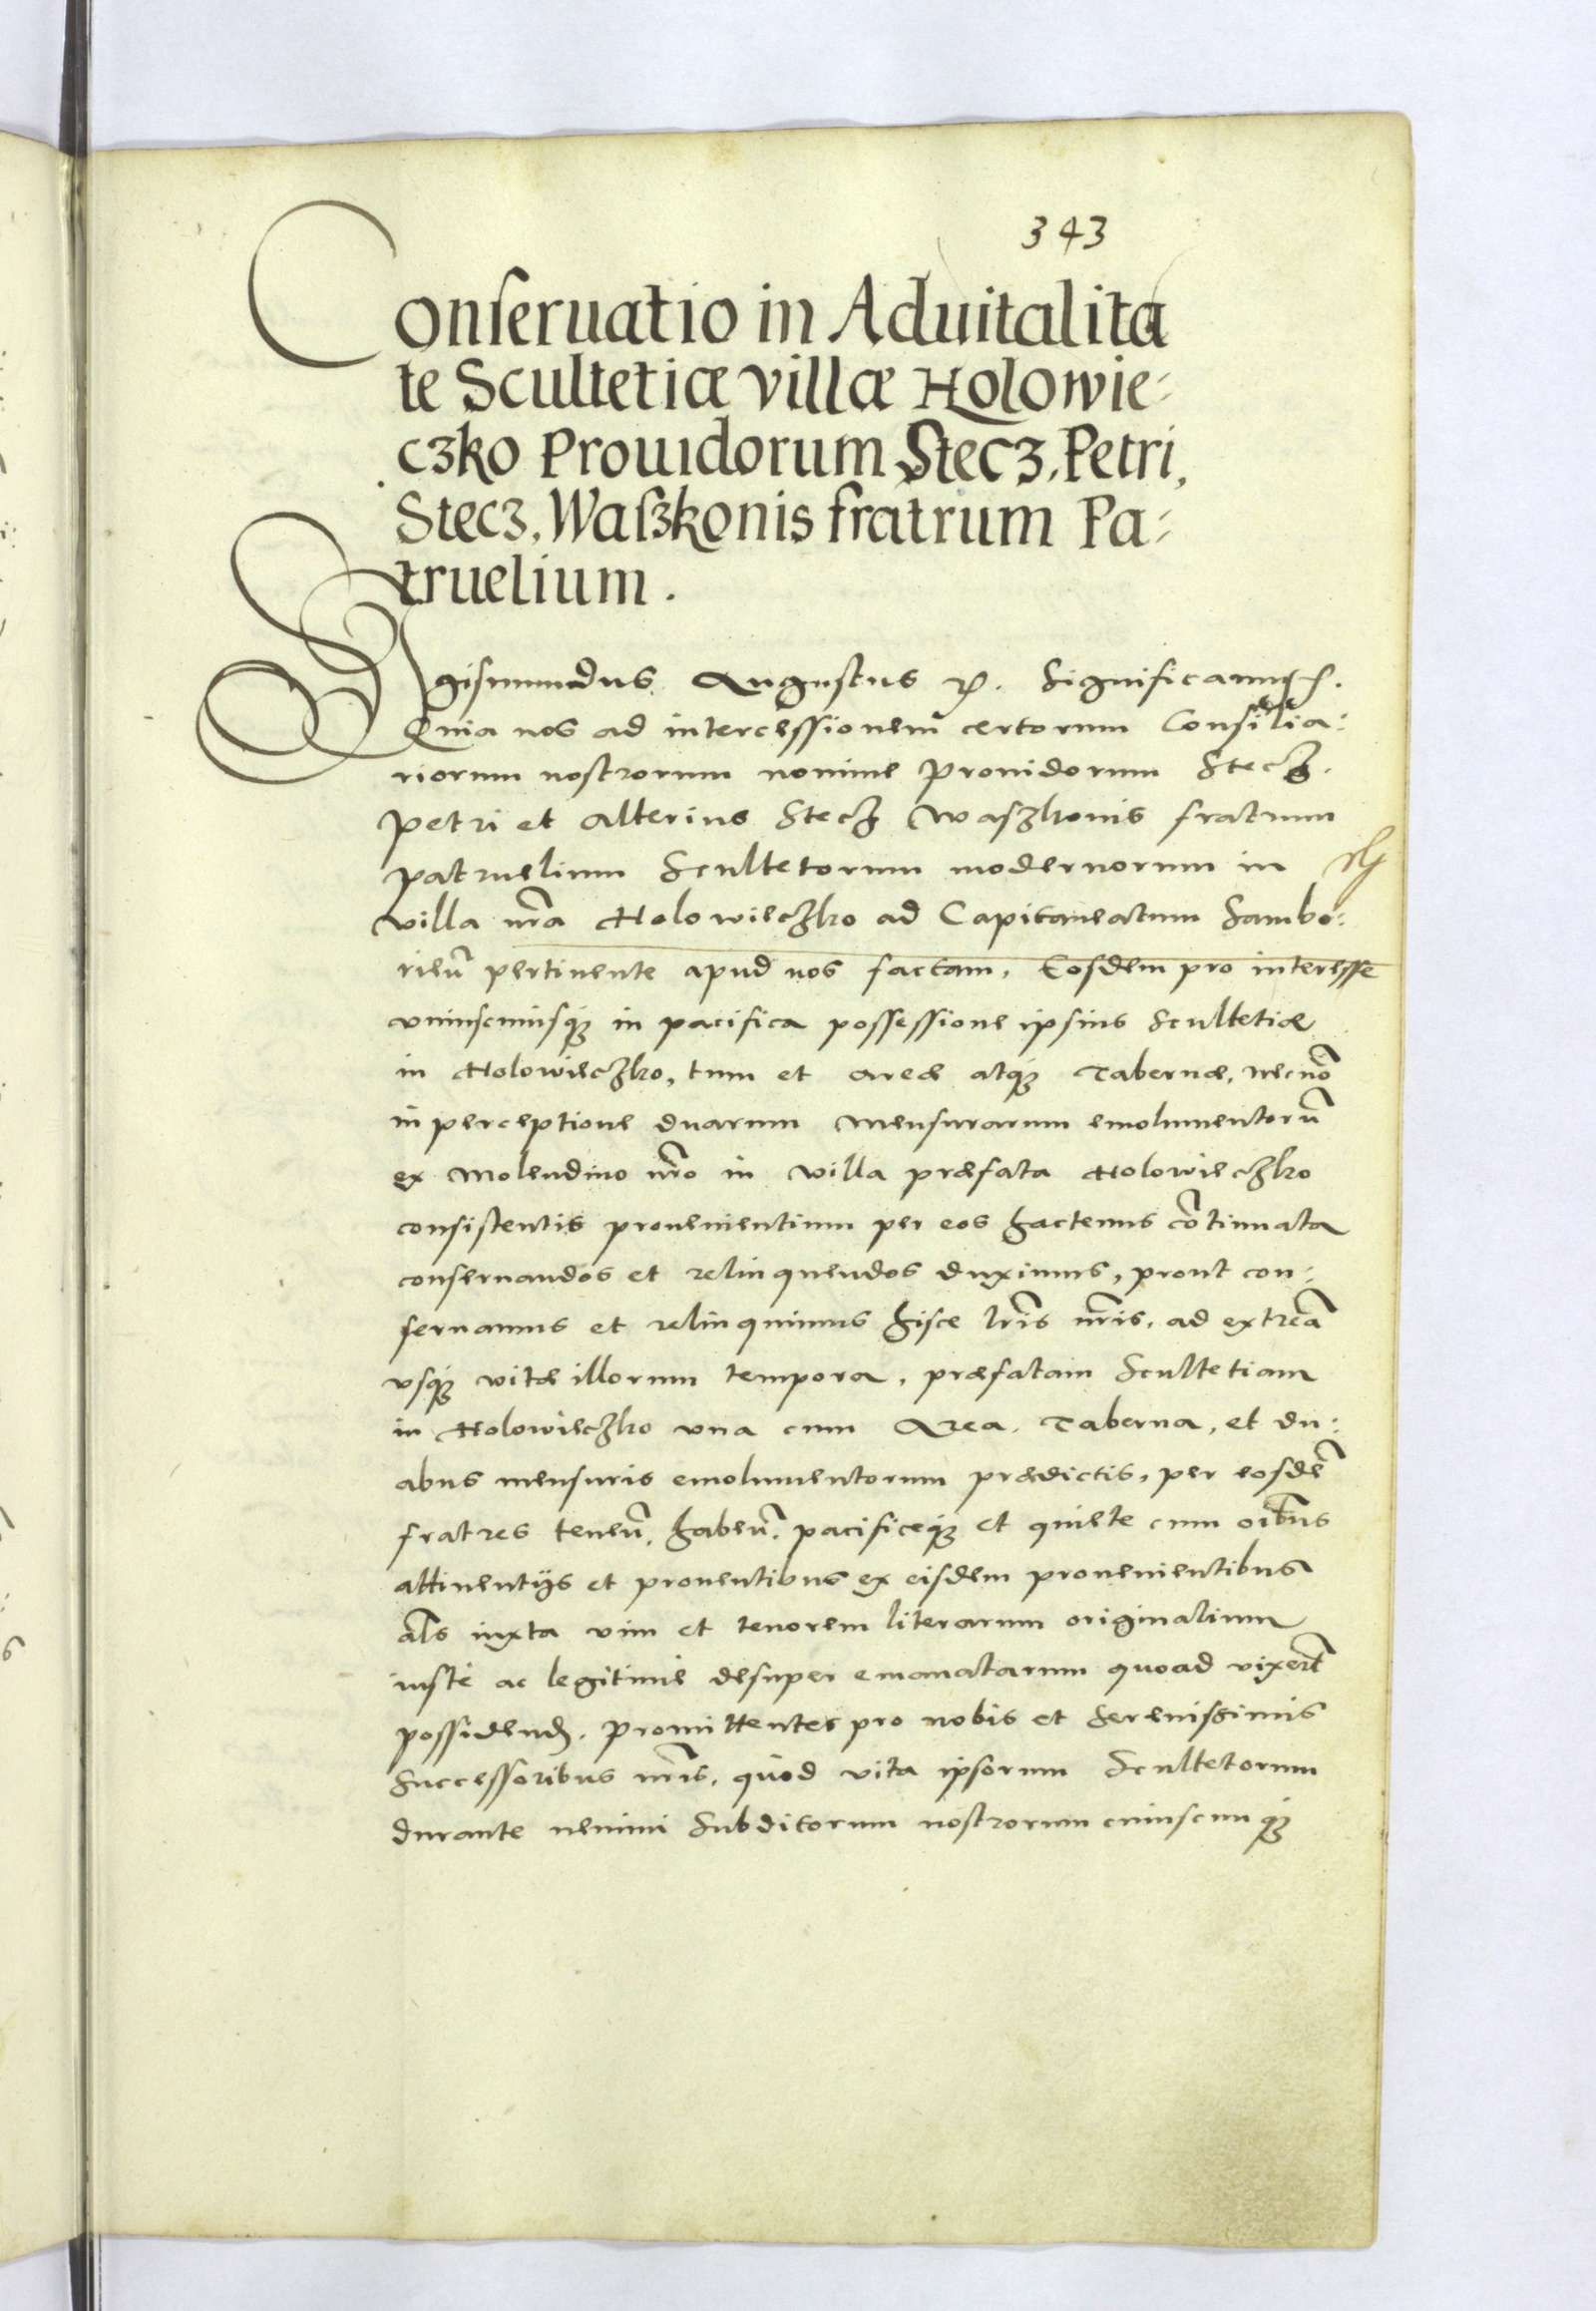 343
Conseruatio in Aduitalita
te Scultetiæ villæ Holowie-
czko Prouidorum Stecz, Petri,
Stecz, Waszkonis fratrum Pa-
truelium.
Sigismundus Augustus Significamus
Quia nos ad intercessionem certorum Consilia-
riorum nostrorum nomine prouidorum Stecz.
Petri et alterius Stecz Waszkonis fratrum
patruelium Scultetorum modernorum in
villa nrã Holowieczko ad Capitaneatum Sambo-
rieñ pertinente apud nos factam. Eosdem pro interesse
vniuscuiusq; in pacifica possessione ipsius Scultetiæ
in Holowieczko, tum et areæ atq; Tabernæ, necnõ
in perceptione duarum mensurarum emolumentorũ
ex molendino nrõ in villa præfata Holowieczko
consistentis prouenientium per eos hactenus cõtinuata
conseruandos et relinquendos duximus, prout con-
seruamus et relinquimus hisce lrĩs nrĩs. ad extrea͂
vsq; vitæ illorum tempora, præfatam Scultetiam
in Holowieczko vna cum Area. Taberna, et du-
abus mensuris emolumentorum prædictis, per eosdẽ
fratres teneñ. habeñ. pacificeq; et quiete cum oĩbus
attinentijs et prouentibus ex eisdem prouenientibus
als̃ iuxta vim et tenorem literarum originalium
iuste ac legitime desuper emanatarum quoad vixerĩt
possidend. Promittentes pro nobis et Serenissimis
Successoribus nrĩs, quod vita ipsorum Scultetorum
durante nemini Subditorum nostrorum cuiuscunq;